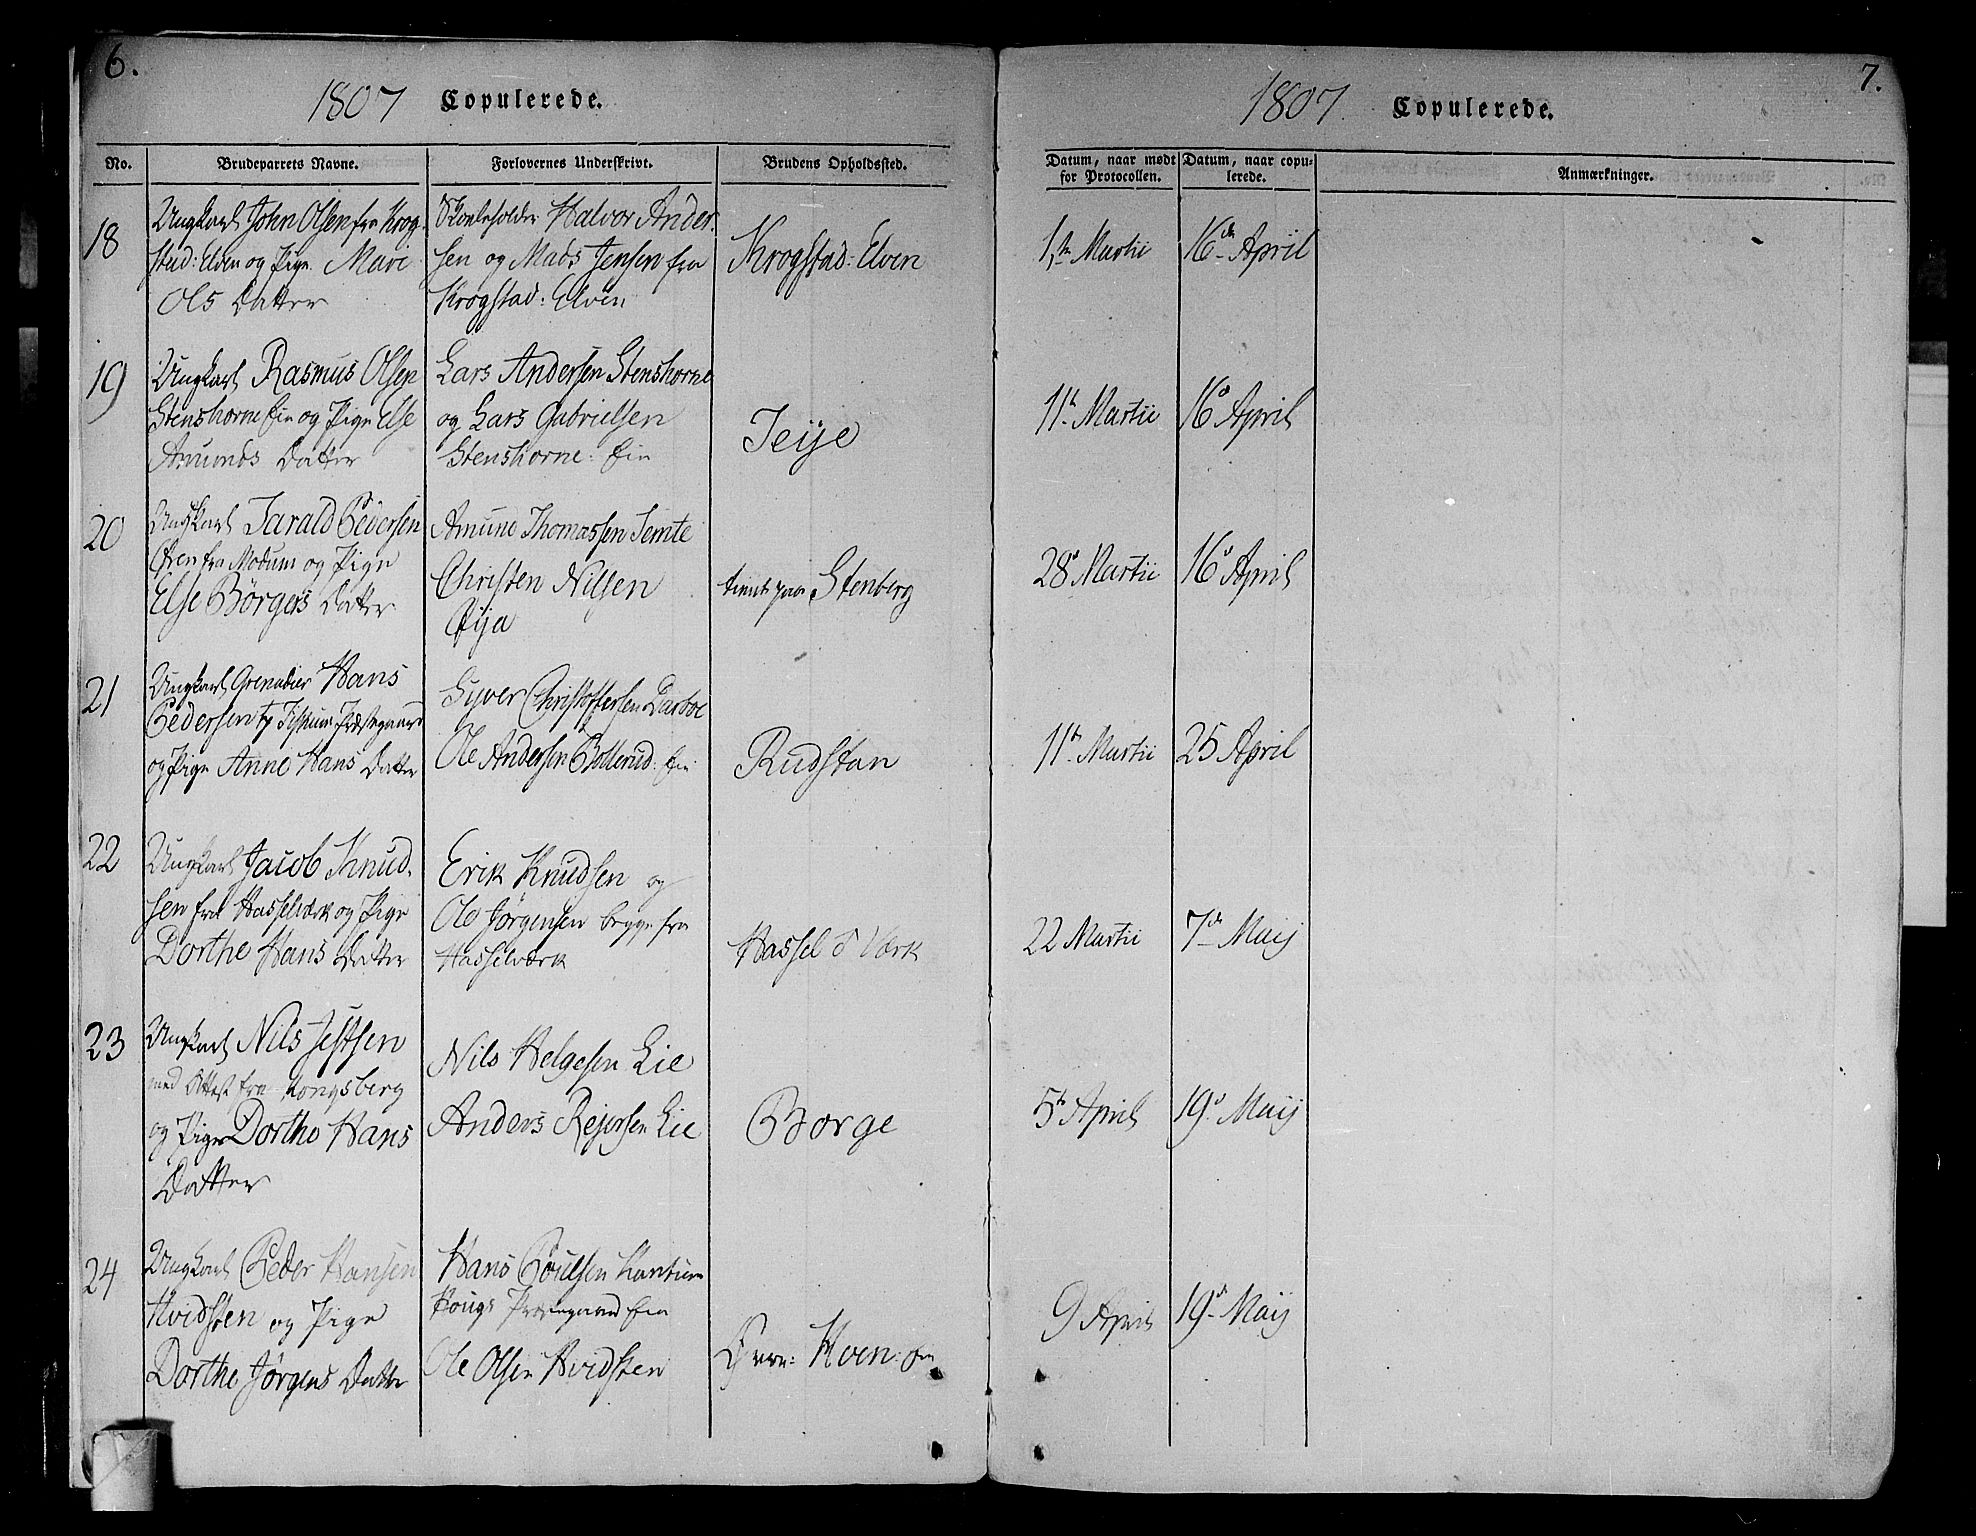 6.
1807 Copulerede.
No. Brudeparrets Navne. Forlovernes Underskrivt. Brudens Opholdssted.
18
Ungkarl John Olsen fra Krog-
stad: Elven og Pige Mari
Ols Datter
Skoeleholder Halvor Ander-
sen og Mads Jensen fra
Krogstad: Elven
Krogstad: Elven
19
Ungkarl Rasmus Olsen
Stenshorne Eie og Pige Else
Amunds Datter
Lars Andersen Stenshorne
og Lars Gabrielsen
Stenshorne: Eie
Teije
20
Ungkarl Tarald Pedersen
fra Modum og Pige
Else Börgers Datter
Amund Thomassen Semte
Christen Nilsen
Eija
tient paa Stenberg
21
Ungkarl Grenadier Hans
Pedersen Fiskum Præstegaard
og Pige Anne Hans Datter
Syver Christoffersen Darboe
Ole Andersen Bollerud: Eie
Rudstan
22
Ungkarl Jacob Knud-
sen fra Hasselværk og Pige
Dorthe Hans Datter
Erik Knudsen og
Ole Jørgensen begge fra
Hasselværk
Hassel Værk
23
Ungkarl Nils Jestsen
med Attest fra Kongsberg
og Pige Dorthe Hans
Datter
Nils Helgesen Lie
Anders Rejersen Lie
Borge
24
Ungkarl Peder Hansen
Hvidsten og Pige
Dorthe Jørgens Datter
Hans Poulsen
Præstegaard Eie
Ole Olsen Hvidsten
Øvre: Hoen: Eie
7.
1807 Copulerede.
Datum, naar mødt for Protocollen. Datum, naar copu- lerede. Anmærkninger.
1ste Martii 16de April
11te Martii 16de April
28de Martii 16de April
11te Martii 25 April
22 Martii 7de Maij
5te April 19de Maij
9 April 19de Maij